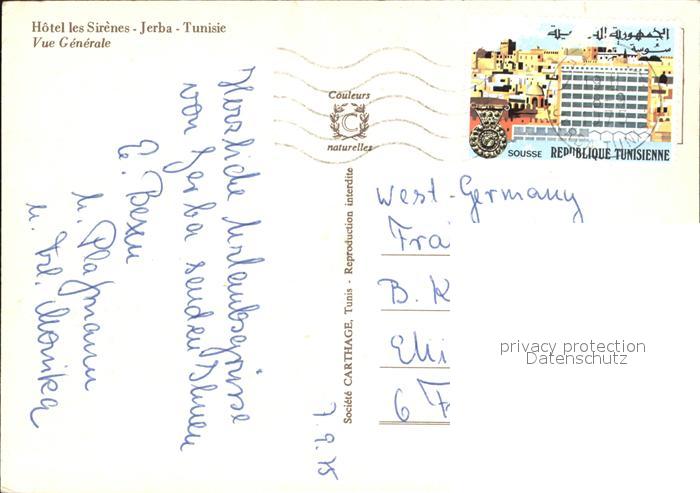 Hôtel les Sirènes - Jerba - Tunisie
Vue Générale
Couleurs
C
naturelles
الجمهورية التونسية
سوسة
SOUSSE REPUBLIQUE TUNISIENNE
Herzliche Urlaubsgrüsse
von Jerba senden Ihnen
E. Bexu
u. Plaßmann
u. Frl. Monika
7.9.75
Société CARTHAGE, Tunis - Reproduction interdite
West-Germany
Fra
B. K
Elli
6 F
privacy protection
Datenschutz